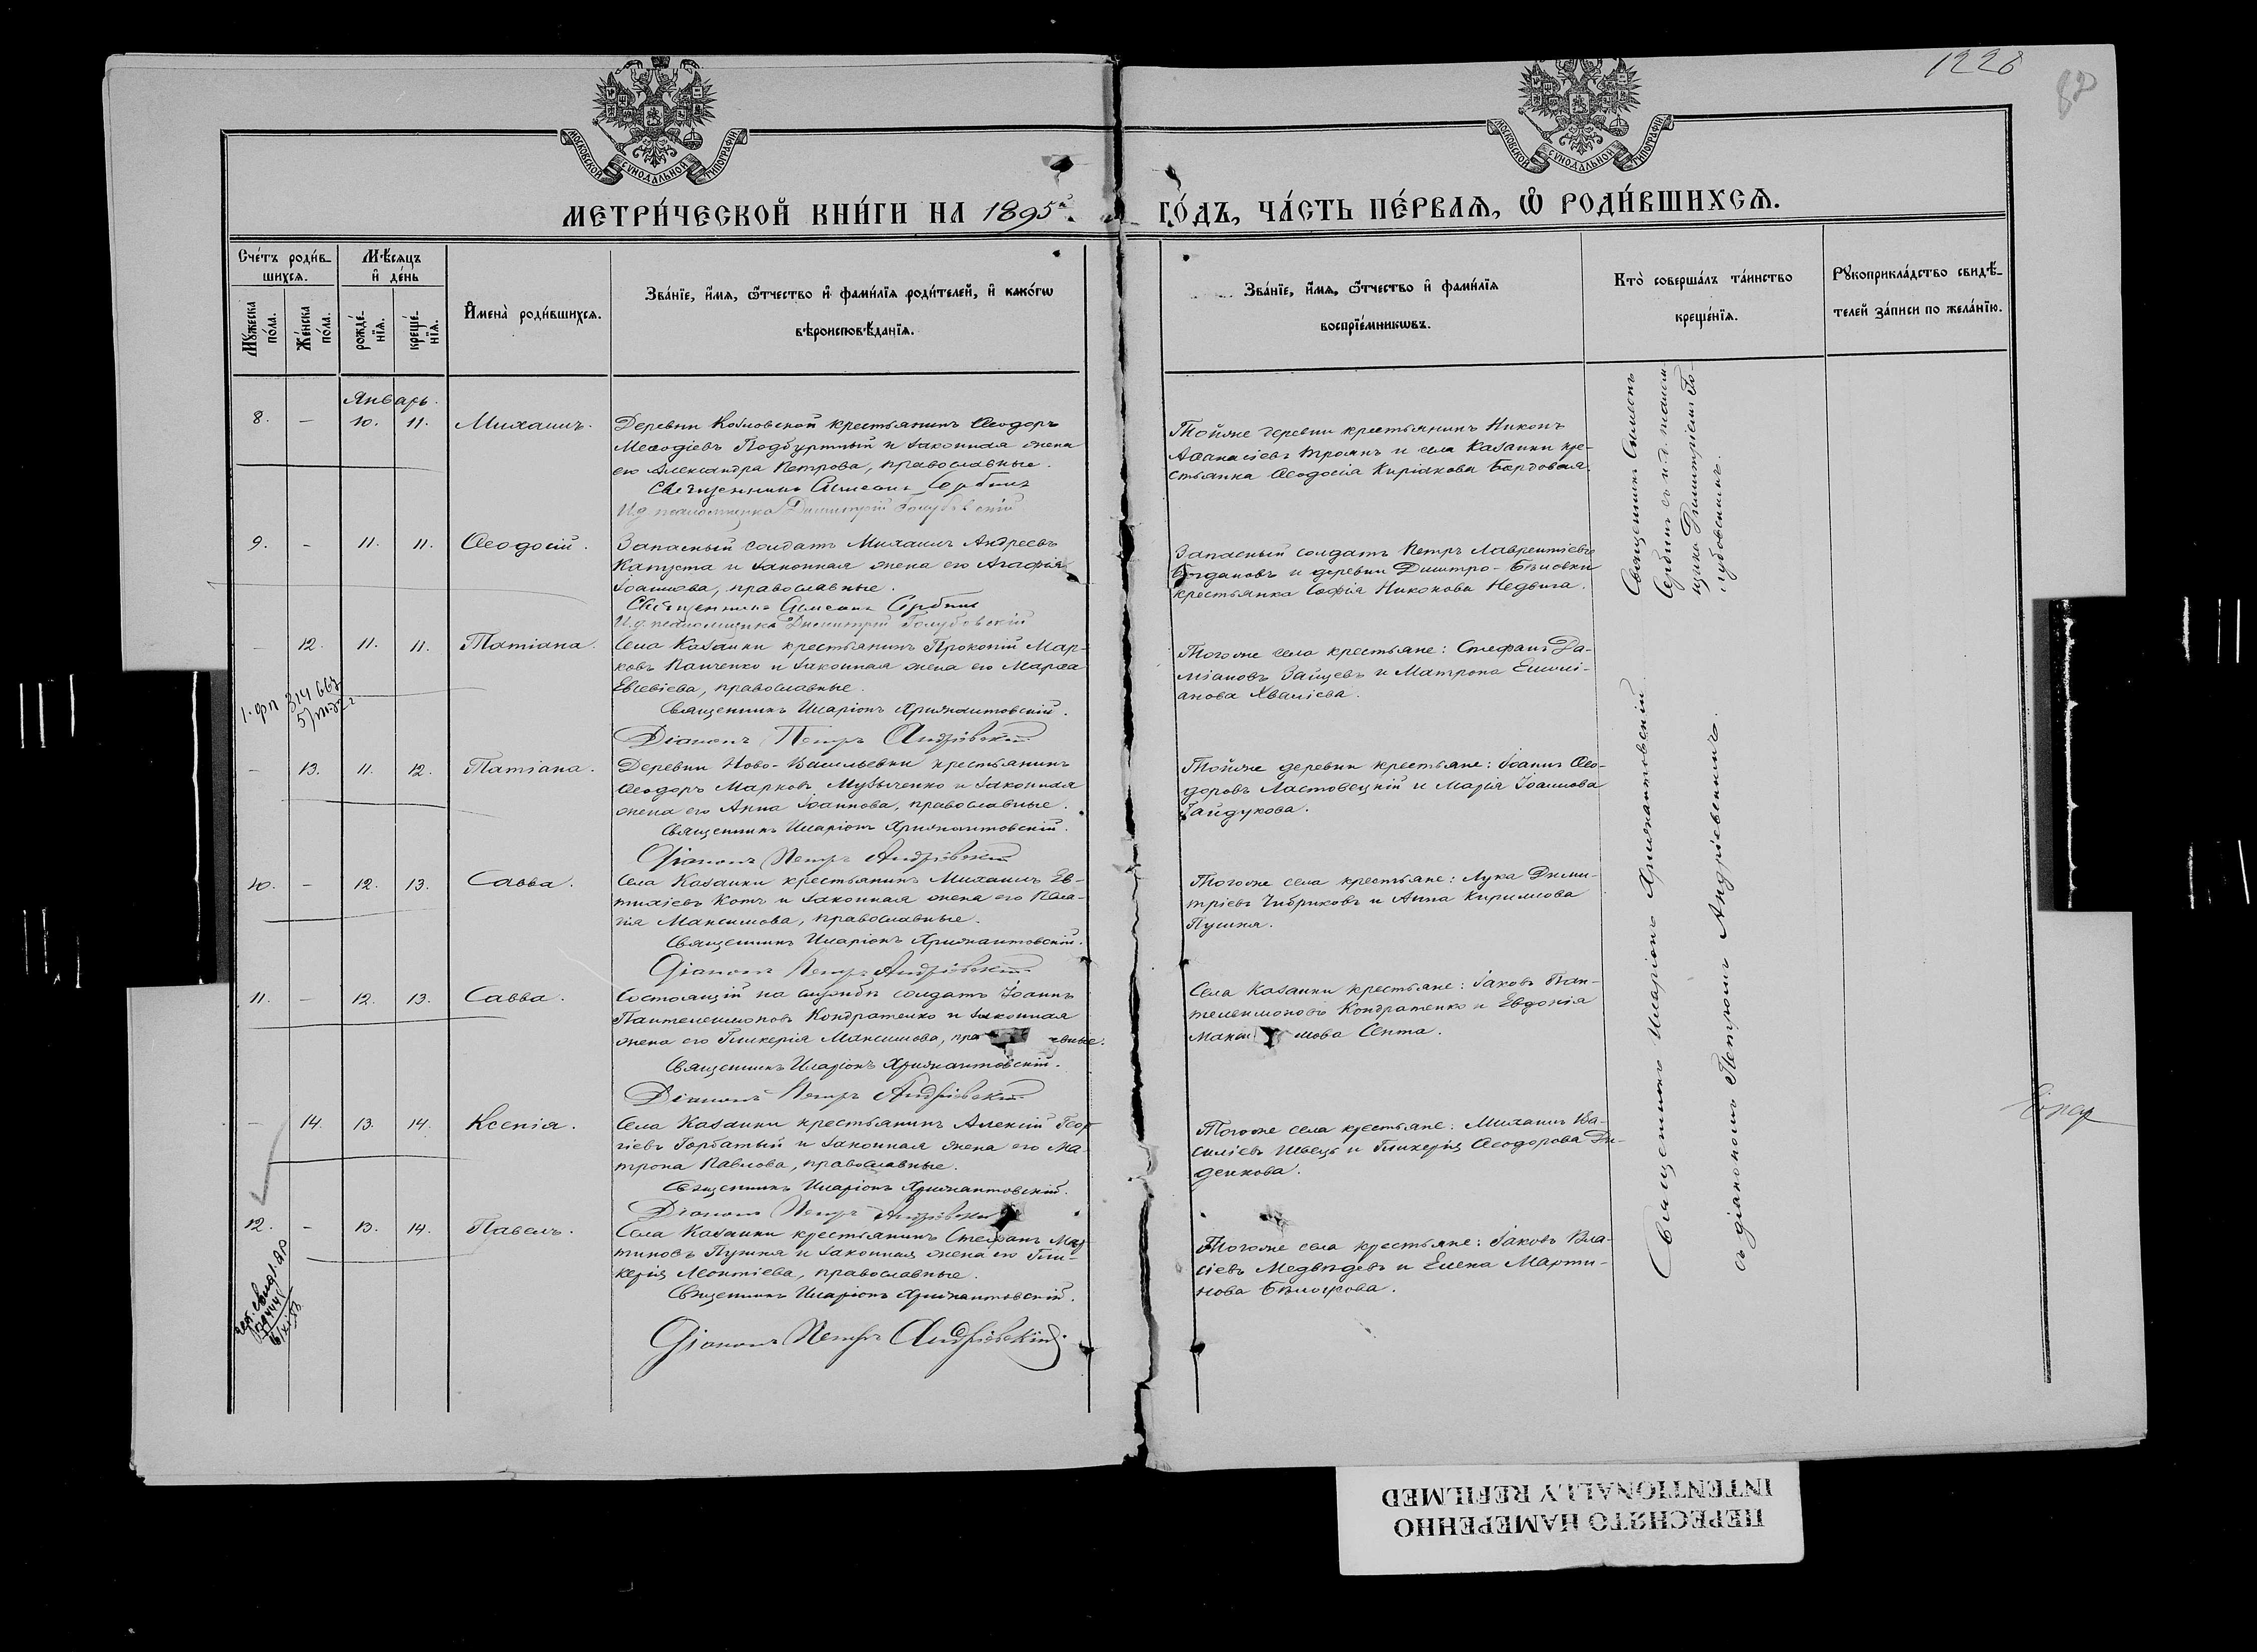 1228
82
МОСКОВСКОЙ СѴНОДАЛЬНОЙ ТИПОГРАФІИ
МОСКОВСКОЙ СѴНОДАЛЬНОЙ ТИПОГРАФІИ
МЕТРИ́ЧЕСКОЙ КНИ́ГИ НА 1895й ГО́ДЪ, ЧА́СТЬ ПЕ́РВАѦ, Ѡ҆ РОДИ́ВШИХСѦ.
Сче́тъ роди́в-
шихсѧ.
Мꙋ́жеска по́ла.
Же́нска по́ла.
Мѣ́сѧцъ
и҆ де́нь
рожде́-
нїѧ.
креще́-
нїѧ.
И҆мена̀ роди́вшихсѧ.
Зва́нїе, и҆́мѧ, ѻ҆́тчество и҆ фами́лїѧ роди́телей, и҆ како́гѡ
вѣроисповѣ́данїѧ.
Зва́нїе, и҆́мѧ, ѻ҆́тчество и҆ фами́лїѧ
воспрїе́мникѡвъ.
Кто̀ соверша́лъ та́инство
креще́нїѧ.
Рꙋкоприкла́дство свидѣ́-
телей за́писи по жела́нїю.
Январь.
8. - 10. 11. Михаилъ.
Деревни Козловской крестьянинъ Ѳеодоръ
Меѳодіевъ Подбуртный и законная жена
его Александра Петрова, православные.
Священникъ Симеонъ Сербинъ
И.д. псаломщика Димитрій Голубовскій
Тойже деревни крестьянинъ Никонъ
Аѳанасіевъ Троянъ и села Казанки кре-
стьянка Ѳеодосія Киріакова Бардовая.
9. - 11. 11. Ѳеодосій.
Запасный солдатъ Михаилъ Андреевъ
Капуста и законная жена его Агафія
Іоаннова, православные.
Священникъ Симеонъ Сербинъ
И.д. псаломщика Димитрій Голубовскій
Запасный солдатъ Петръ Лаврентіевъ
Богдановъ и деревни Дмитро-Бѣловки
крестьянка Софія Никонова Недвига.
Священникъ Симеонъ
Сербинъ съ и.д. псалом-
щика Димитріемъ Го-
лубовскимъ.
- 12. 11. 11. Татіана.
Села Казанки крестьянинъ Прокопій Мар-
ковъ Панченко и законная жена его Марѳа
Евсевіева, православные.
Священникъ Иларіонъ Хрисантовскій.
Діаконъ Петръ Андріевскій
Тогоже села крестьяне: Стефанъ Да-
міановъ Зайцевъ и Матрона Емили-
анова Хваліева.
- 13. 11. 12. Татіана.
Деревни Ново-Васильевки крестьянинъ
Ѳеодоръ Марковъ Музыченко и законная
жена его Анна Іоаннова, православные.
Священникъ Иларіонъ Хрисантовскій.
Діаконъ Петръ Андріевскій
Тойже деревни крестьяне: Іоаннъ Ѳео-
доровъ Ластовецкій и Марія Іоаннова
Гайдукова.
10. - 12. 13. Савва.
Села Казанки крестьянинъ Михаилъ Ев-
тихіевъ Котъ и законная жена его Пела-
гія Максимова, православные.
Священникъ Иларіонъ Хрисантовскій.
Діаконъ Петръ Андріевскій
Тогоже села крестьяне: Лука Дими-
тріевъ Чибриковъ и Анна Кириллова
Пушня.
11. - 12. 13. Савва.
Состоящій на службѣ солдатъ Іоаннъ
Пантелеимоновъ Кондратенко и законная
жена его Гликерія Максимова, пра вные.
Священникъ Иларіонъ Хрисантовскій.
Діаконъ Петръ Андріевскій
Села Казанки крестьяне: Іаковъ Пан-
телеимоновъ Кондратенко и Евдокія
Макси мова Септа.
- 14. 13. 14. Ксенія.
Села Казанки крестьянинъ Алексій Геор-
гіевъ Горбатый и законная жена его Ма-
трона Павлова, православные.
Священникъ Иларіонъ Хрисантовскій.
Діаконъ Петръ Андріевскій
Тогоже села крестьяне: Михаилъ Ва-
силіевъ Швецъ и Гликерія Ѳеодорова Ди-
денкова.
12. - 13. 14. Павелъ.
Села Казанки крестьянинъ Стефанъ Мар-
тиновъ Пушня и законная жена его Гли-
керія Леонтіева, православные.
Священникъ Иларіонъ Хрисантовскій.
Діаконъ Петръ Андріевскій.
Тогоже села крестьяне: Іаковъ Вла-
сіевъ Медвѣдевъ и Елена Марти-
нова Бѣлоусова.
Священникъ Иларіонъ Хрисантовскій
съ діакономъ Петромъ Андріевскимъ.
ПЕРЕСНЯТО НАМЕРЕННО
INTENTIONALLY REFILMED